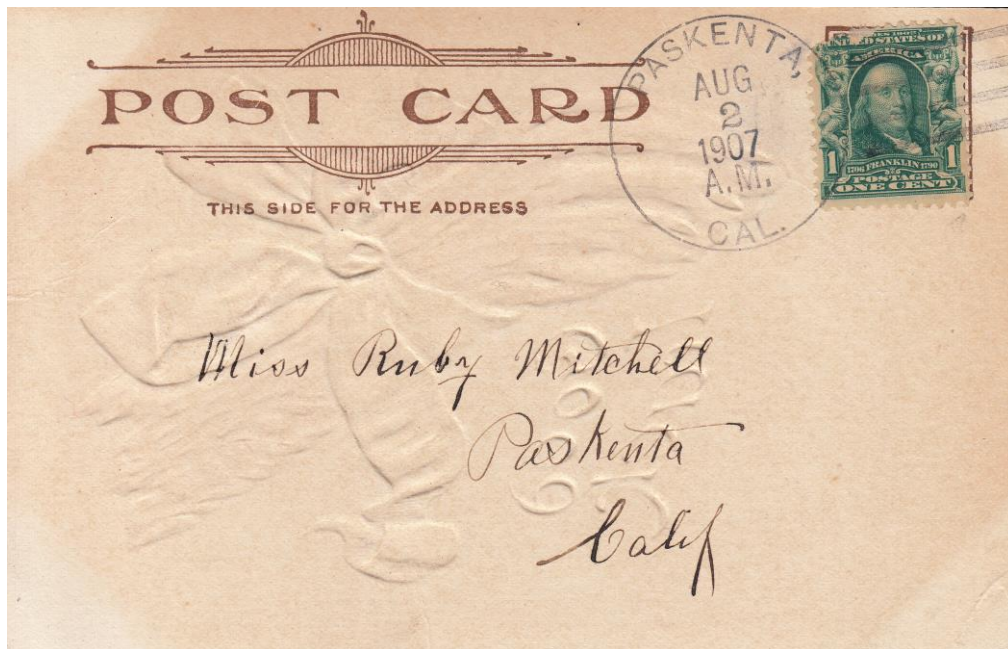 POST CARD
THIS SIDE FOR THE ADDRESS
PASKENTA,
AUG
2
1907
A.M.
CAL.
STATES OF
AMERICA
1 1706 FRANKLIN 1790 1
POSTAGE
ONE CENT
Miss Ruby Mitchell
Paskenta
Calif